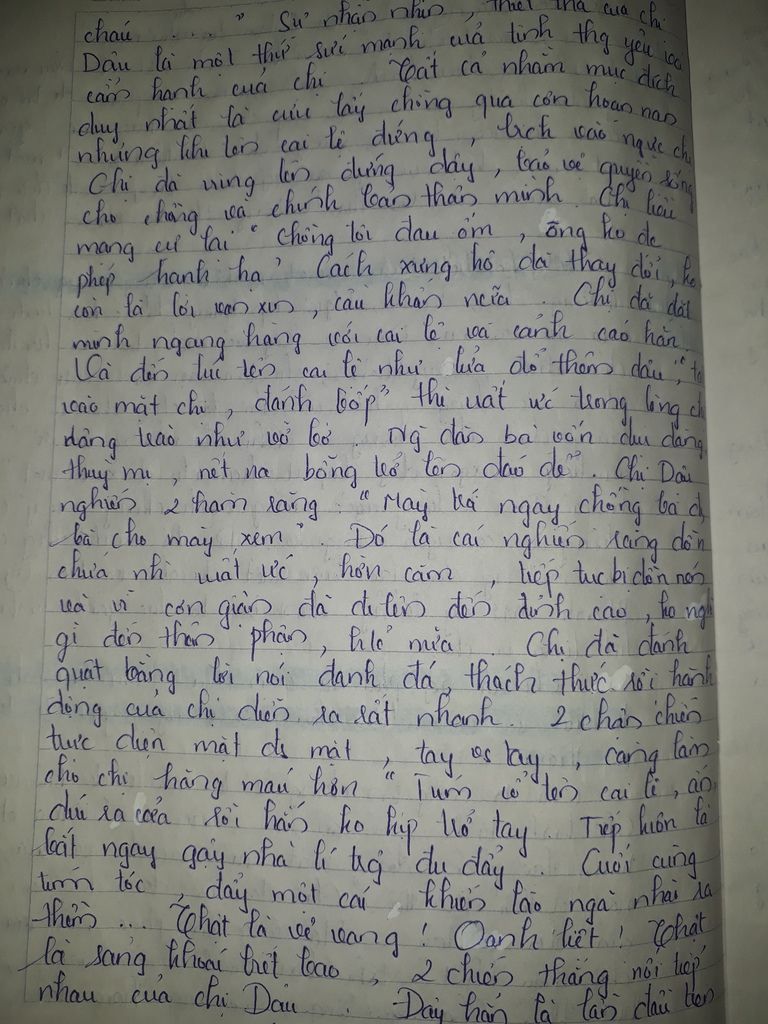 cháu .... " Sự nhẫn nhịn, thiết tha của chị
Dậu là một thứ sức mạnh của tình thg yêu và
cần hành của chị. Tất cả nhằm mục đích
duy nhất là cứu lấy chồng qua cơn hoạn nạn
nhưng khi tên cai lệ dừng, bịch vào ngực ch
Chị đã vùng lên đứng dậy, bảo vệ quyền sống
cho chồng và chính bản thân mình. Chị liều
mạng cự lại " chồng tôi đau ốm, ông ko đc
phép hành hạ " Cách xưng hô đã thay đổi, ko
còn là lời van xin, cầu khẩn nữa. Chị đã đặt
mình ngang hàng với cai lệ và cảnh cáo hắn.
Và đến lúc tên cai lệ như lửa đổ thêm dầu, " tá
vào mặt chị, đánh bốp " thì uất ức trong lòng ch
dâng trào như vỡ bờ. Ng đàn bà vốn dịu dàng
thuỳ mị, nết na bỗng trở lên đáo để. Chị Dậu
nghiến 2 hàm răng. " Mày trói ngay chồng bà đi
bà cho mày xem ". Đó là cái nghiến răng dồn
chứa nhì uất ức, hờn căm, tiếp tục bị dồn nén
và vì cơn giận đã đi lên đến đỉnh cao, ko ngh
gì đến thân phận, nữa. Chị đã đánh
quật bằng lời nói đanh đá, thách thức rồi hành
động của chị diễn ra rất nhanh. 2 chân chiến
tực diện mặt đs mặt, tay vs tay, càng làm
cho chị hăng máu hơn " Túm cổ tên cai lệ, ấn
dúi ra cửa rồi hắn ko kịp trở tay. Tiếp luôn là
bắt ngay gậy nhà lí trg du đẩy. Cuối cùng
túm tóc, đẩy một cái khiến lão ngã nhào ra
thềm... Thật là vẻ vang! Oanh liệt! Thật
là sảng khoái biết bao, 2 chiến thắng nối tiếp
nhau của chị Dậu. Đây hẳn là lần đầu tiên